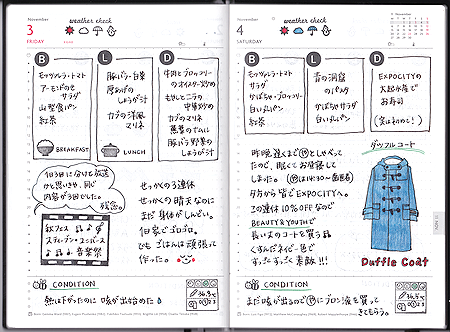 November
3
FRIDAY
weather check
B
モッツァレラ・トマト
アーモンドのせ
サラダ
山型食パン
紅茶
BREAKFAST
L
豚バラ・白菜
厚あげの
しょうが汁
カブの洋風
マリネ
LUNCH
D
牛肉とブロッコリー
のオイスター炒め
もやしとニラの
中華炒め
カブのマリネ
豚バラ野菜の
しょうが汁
1日3日に分けて放送
かと思いきや、同じ
内容が3回でした。
残念。
紙フェス
スティーブン・ユニバース
音楽祭
せっかくの3連休
せっかくの晴天なのに
まだ身体がしんどい。
1日家でゴロゴロ。
でもごはんは頑張って
作った。
CONDITION
熱は下がったのに 咳が出始めた
November
4
SATURDAY
weather check
B
モッツァレラ・トマト
サラダ
かぼちゃ・ブロッコリー
白い丸パン
紅茶
L
青の洞窟
のパスタ
かぼちゃサラダ
白い丸パン
D
EXPOCITYの
大起水産で
お寿司
昨晩遅くまで
しゃべって
たので、眠くてお昼寝して
しました。
夕方から皆でEXPOCITYへ。
この連休10%OFFなので
BEAUTY&YOUTHで
長いめのコートを買う
くすんだネイビー色で
すっごすっごく素敵!!!
ダッフルコート
Duffle Coat
CONDITION
まだ咳が出るので
にブロン液を買って
きてもらう。